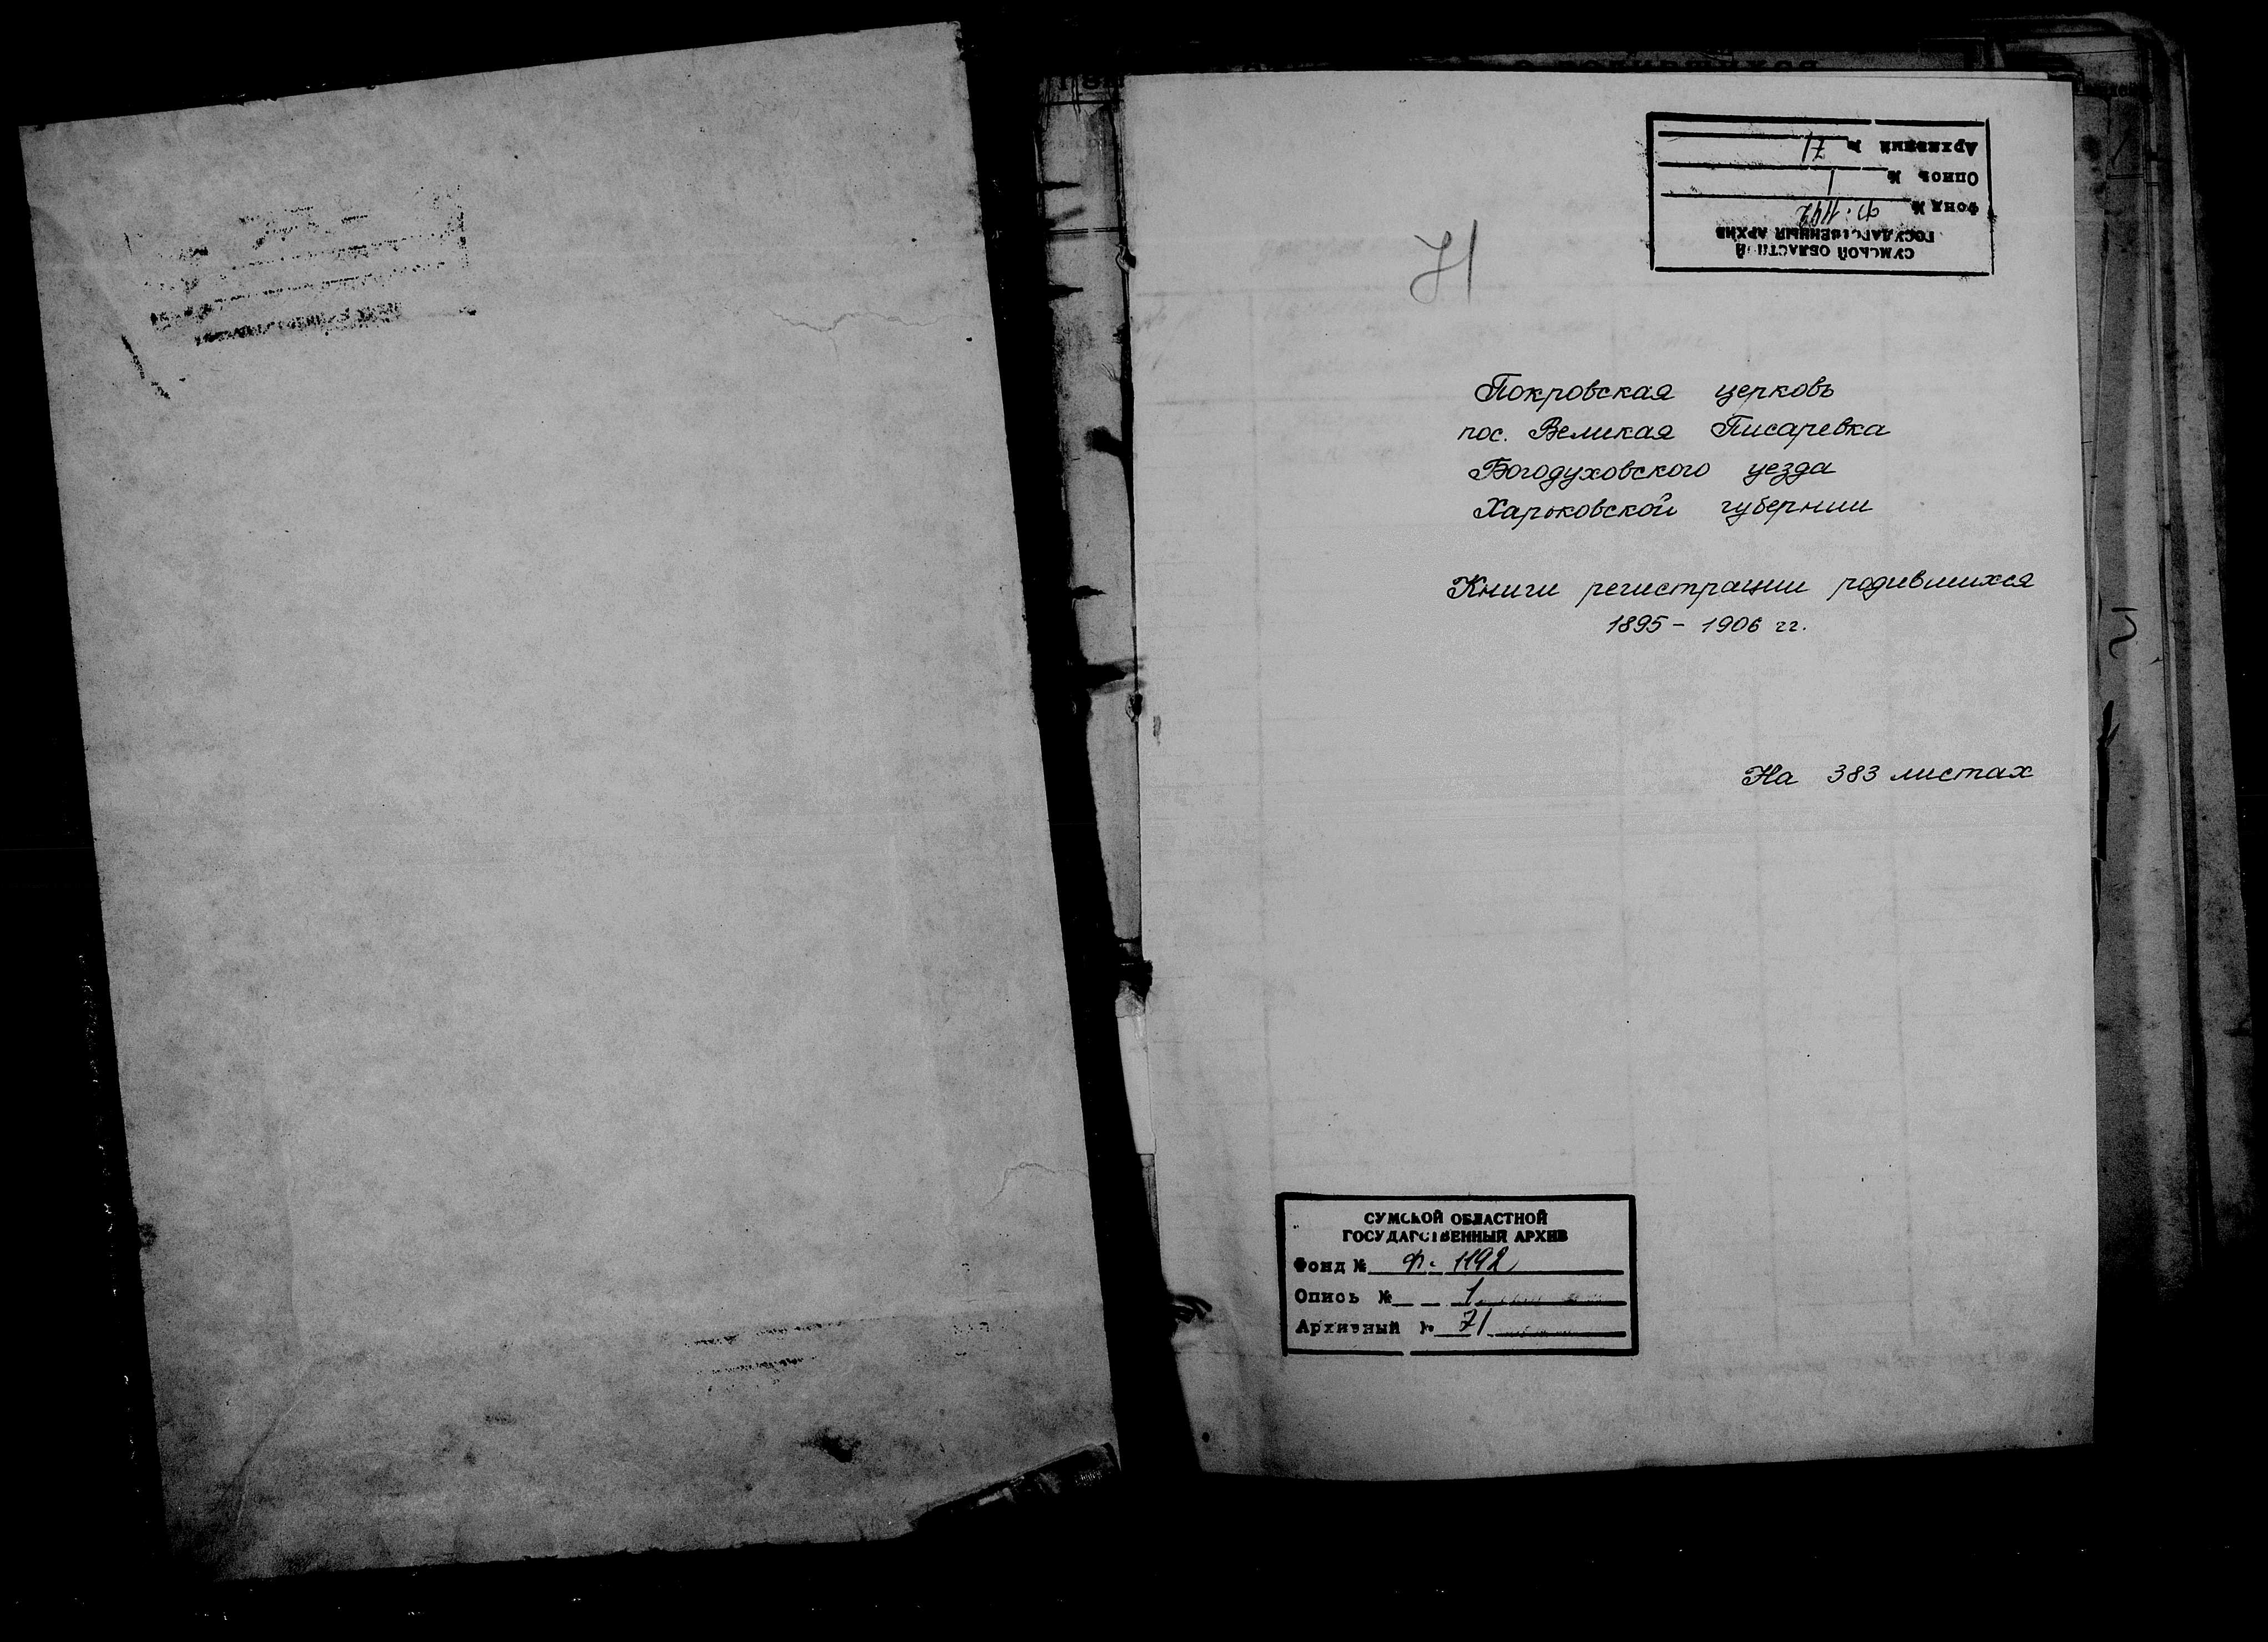 СУМСКОЙ ОБЛАСТНОЙ
ГОСУДАРСТВЕННЫЙ АРХИВ
Фонд № Ф. 1192
Опись № 1
Архивный № 71
71
Покровская церковь
пос. Великая Писаревка
Богодуховского уезда
Харьковской губернии
Книги регистрации родившихся
1895 - 1906 гг.
На 383 листах
СУМСКОЙ ОБЛАСТНОЙ
ГОСУДАРСТВЕННЫЙ АРХИВ
Фонд № Ф. 1192
Опись № 1
Архивный № 71